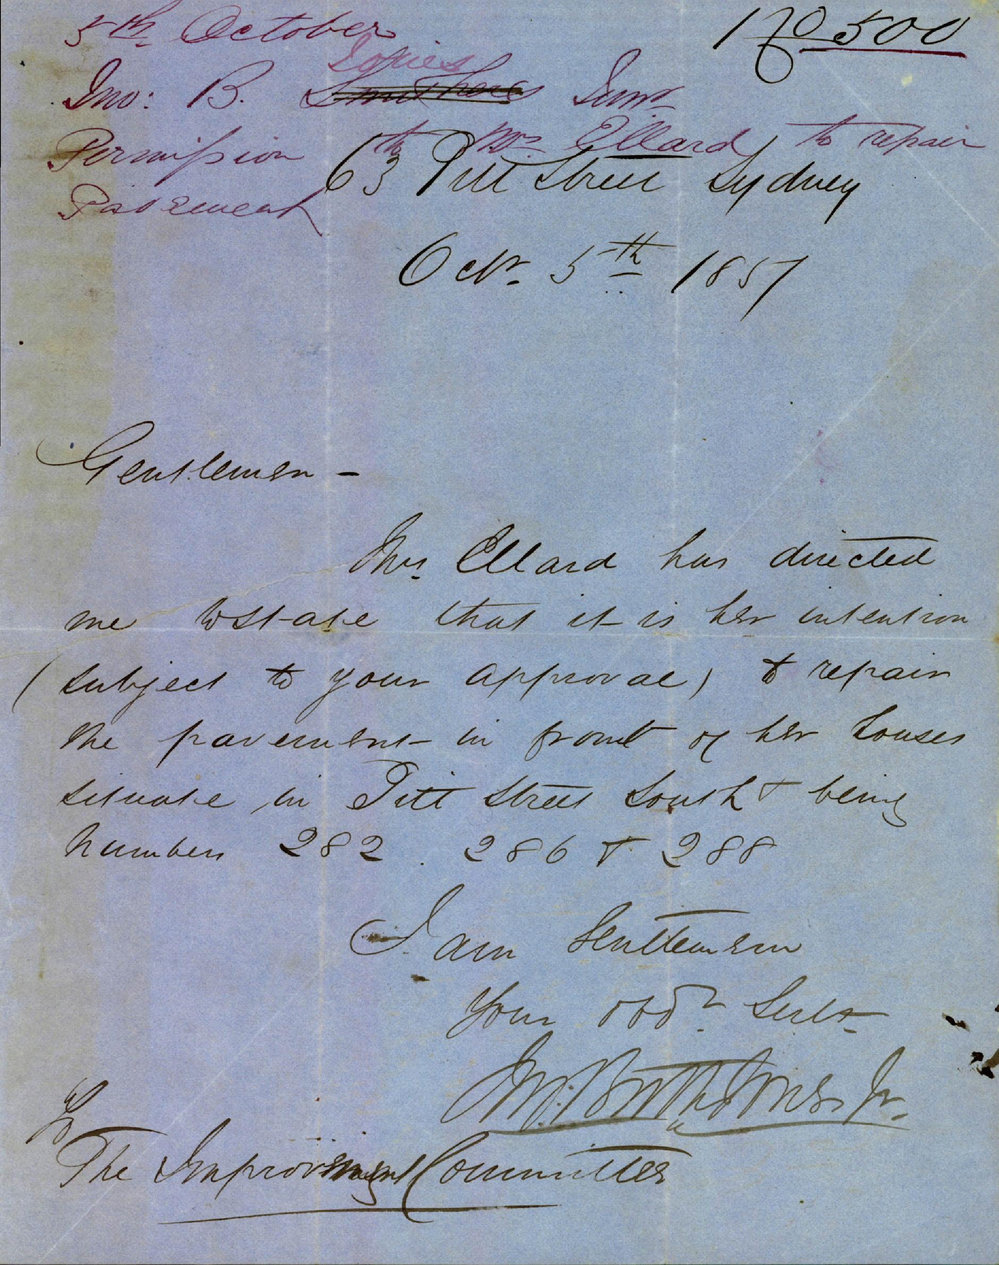 5th October
No 500
Jones
Jno: B. Smithers Junr
Permission to Mrs Ellard to repair
Pavement
63 Pitt Street Sydney
Octr. 5th 1857
Gentlemen -
Mrs. Ellard has directed
me to state that it is her intention
(subject to your approval) to repair
the pavement in front of her houses
situate in Pitt Street South & being
Numbers 282 . 286 & 288
I am Gentlemen
Your obdt. Servt.
Jno. Jones Jr.
To
The Improvement Committee